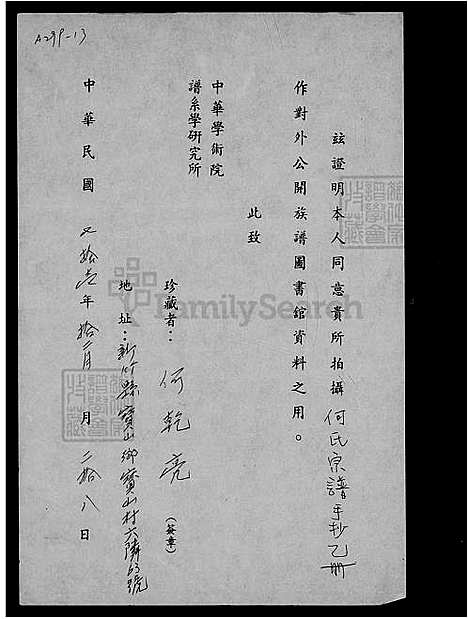 A299-13
茲證明本人同意貴所拍攝何氏宗譜手抄乙冊
作對外公開族譜圖書館資料之用。
此致
中華學術院
譜系學研究所
珍藏者：何乾亮（簽章）
地址：新竹縣寶山鄉寶山村六隣63號
中華民國 年拾二月 月二拾八日
FamilySearch